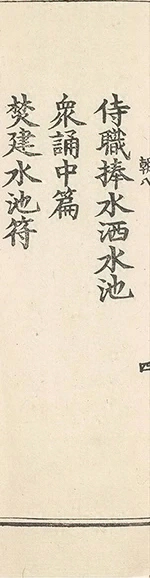 侍職捧水洒水池
衆誦中篇
焚建水池符